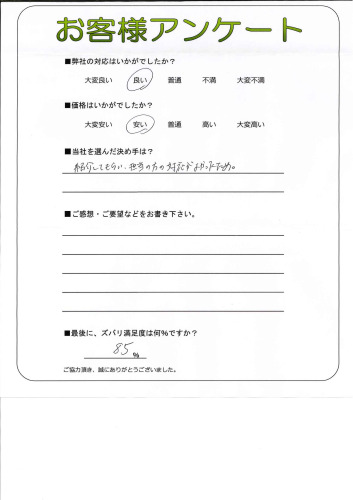 お客様アンケート
■弊社の対応はいかがでしたか？
大変良い 良い 普通 不満 大変不満
■価格はいかがでしたか？
大変安い 安い 普通 高い 大変高い
■当社を選んだ決め手は？
紹介してもらい、担当の方の対応がよかったため。
■ご感想・ご要望などをお書き下さい。
■最後に、ズバリ満足度は何％ですか？
85 %
ご協力頂き、誠にありがとうございました。